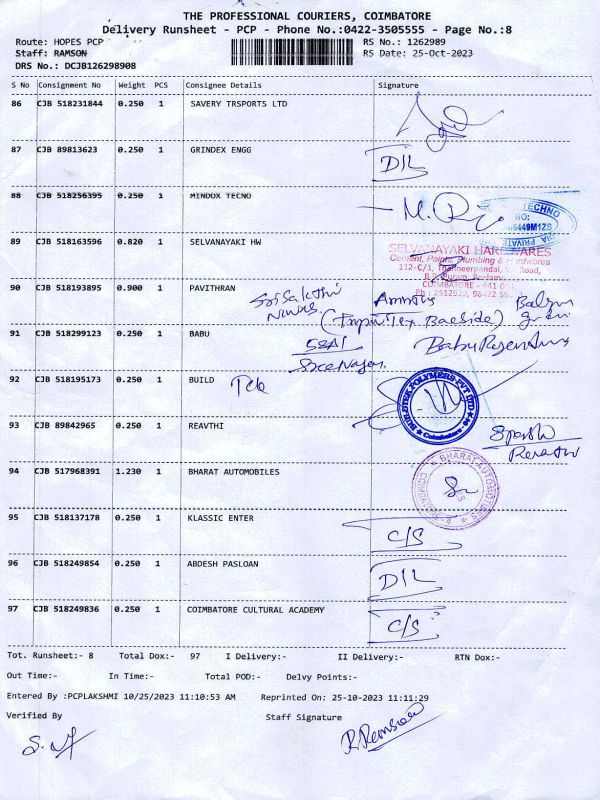 THE PROFESSIONAL COURIERS, COIMBATORE
Delivery Runsheet - PCP - Phone No.:0422-3505555 - Page No.:8
Route: HOPES PCP RS No.: 1262989
Staff: RAMSON RS Date: 25-Oct-2023
DRS No.: DCJB126298908
S No Consignment No Weight PCS Consignee Details Signature
86 CJB 518231844 0.250 1 SAVERY TRSPORTS LTD
87 CJB 89813623 0.250 1 GRINDEX ENGG D/L
88 CJB 518256395 0.250 1 MINDOX TECNO
TECHNO
NO:
6449M1ZS
89 CJB 518163596 0.820 1 SELVANAYAKI HW
SELVANAYAKI HARDWARES
Cement, Paints, Plumbing & Hardwares
112-C/1, Thanneerpandal, Road,
COIMBATORE - 641 0
90 CJB 518193895 0.900 1 PAVITHRAN
91 CJB 518299123 0.250 1 BABU
92 CJB 518195173 0.250 1 BUILD
BUILDTEK POLYMERS PVT LTD
Coimbatore
93 CJB 89842965 0.250 1 REAVTHI
94 CJB 517968391 1.230 1 BHARAT AUTOMOBILES
95 CJB 518137178 0.250 1 KLASSIC ENTER C/S
96 CJB 518249854 0.250 1 ABDESH PASLOAN D/L
97 CJB 518249836 0.250 1 COIMBATORE CULTURAL ACADEMY C/S
Tot. Runsheet:- 8 Total Dox:- 97 I Delivery:- II Delivery:- RTN Dox:-
Out Time:- In Time:- Total POD:- Delvy Points:-
Entered By :PCPLAKSHMI 10/25/2023 11:10:53 AM Reprinted On: 25-10-2023 11:11:29
Verified By Staff Signature